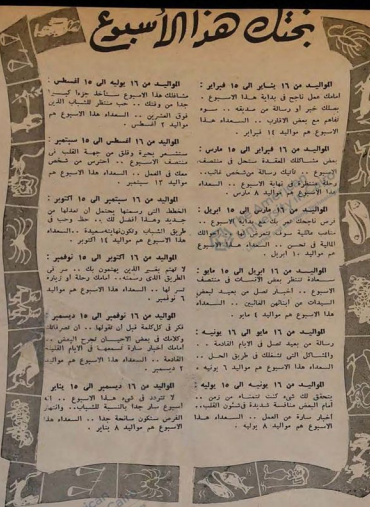 بختك هذا الأسبوع
المواليد من ١٦ يناير الى ١٥ فبراير :
أمامك عمل ناجح في بداية هذا الاسبوع .
يصلك خبر أو رسالة من صديقة .. سوء
تفاهم مع بعض الاقارب .. السعداء هذا
الاسبوع هم مواليد ١٤ فبراير .
المواليد من ١٦ فبراير الى ١٥ مارس :
بعض مشاكلك المعقدة ستحل في منتصف
الاسبوع .. تأتيك رسالة من شخص غائب..
رحلة منتظرة في نهاية الاسبوع .. السعداء
هذا الاسبوع هم مواليد ٨ مارس .
المواليد من ١٦ مارس الى ١٥ ابريل :
فرص ناجحة تمر بك في بداية الاسبوع ..
متاعب عائلية سوف تتعرض لها .. أحوالك
المالية في تحسن .. السعداء هذا الاسبوع
هم مواليد ١٠ ابريل .
المواليد من ١٦ ابريل الى ١٥ مايو :
سعادة تنتظر بعض الآنسات في منتصف
الاسبوع .. أخبار تصل من بعيد لبعض
السيدات من ابنائهن الغائبين .. السعداء
هذا الاسبوع هم مواليد ٤ مايو .
المواليد من ١٦ مايو الى ١٥ يونيه :
رسالة من بعيد تصل في الايام القادمة ..
والمشاكل التي تشغلك في طريق الحل ..
السعداء هذا الاسبوع هم مواليد ٦ يونيه .
المواليد من ١٦ يونيه الى ١٥ يوليه :
يتحقق لك شيء كنت تتمناه من زمن ..
أمام البعض منافسة شديدة في شئون القلب..
أخبار سارة من العمل .. السعداء هذا
الاسبوع هم مواليد ٨ يوليه .
المواليد من ١٦ يوليه الى ١٥ أغسطس :
مشاغلك هذا الاسبوع ستأخذ جزءا كبيرا
جدا من وقتك .. حب منتظر للشباب الذين
فوق العشرين .. السعداء هذا الاسبوع هم
مواليد ٢ أغسطس .
المواليد من ١٦ أغسطس الى ١٥ سبتمبر :
ستشعر بحيرة وقلق من جهة القلب في
منتصف الاسبوع .. احترس من شخص
معك في العمل .. السعداء هذا الاسبوع هم
مواليد ١٣ سبتمبر .
المواليد من ١٦ سبتمبر الى ١٥ أكتوبر :
الخطط التي رسمتها يحتمل ان تعدلها من
جديد وهذا أفضل لك .. حظ وحب في
طريق الشباب وتكون نهايته سعيدة .. السعداء
هذا الاسبوع هم مواليد ١٤ أكتوبر .
المواليد من ١٦ أكتوبر الى ١٥ نوفمبر :
لا تهتم بغير الذين يهتمون بك .. سر في
الطريق الذي رسمته.. أمامك رحلة أو زيارة
تسر لها .. السعداء هذا الاسبوع هم مواليد
٦ نوفمبر .
المواليد من ١٦ نوفمبر الى ١٥ ديسمبر :
فكر في كل كلمة قبل أن تقولها .. ان تصرفاتك
وكلامك في بعض الاحيان تجرح البعض ..
أمامك أخبار سارة تسمعها في الايام القليلة
القادمة .. السعداء هذا الاسبوع هم مواليد
٢ ديسمبر .
المواليد من ١٦ ديسمبر الى ١٥ يناير
لا تتردد في شيء هذا الاسبوع ..
أسبوع سار جدا بالنسبة للشباب.. وانتهاز
الفرص ستكون سانحة جدا .. السعداء هذا
الاسبوع هم مواليد ٨ يناير .